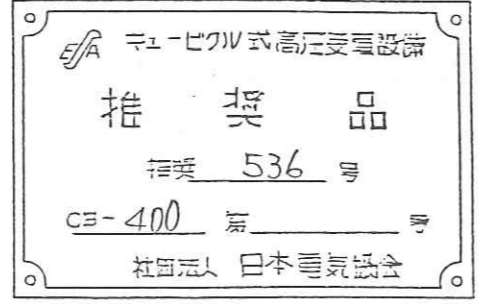 ESA キュービクル式高圧受電設備
推奨品
推奨 536 号
Cヨ-400 第 号
社団法人 日本電気協会